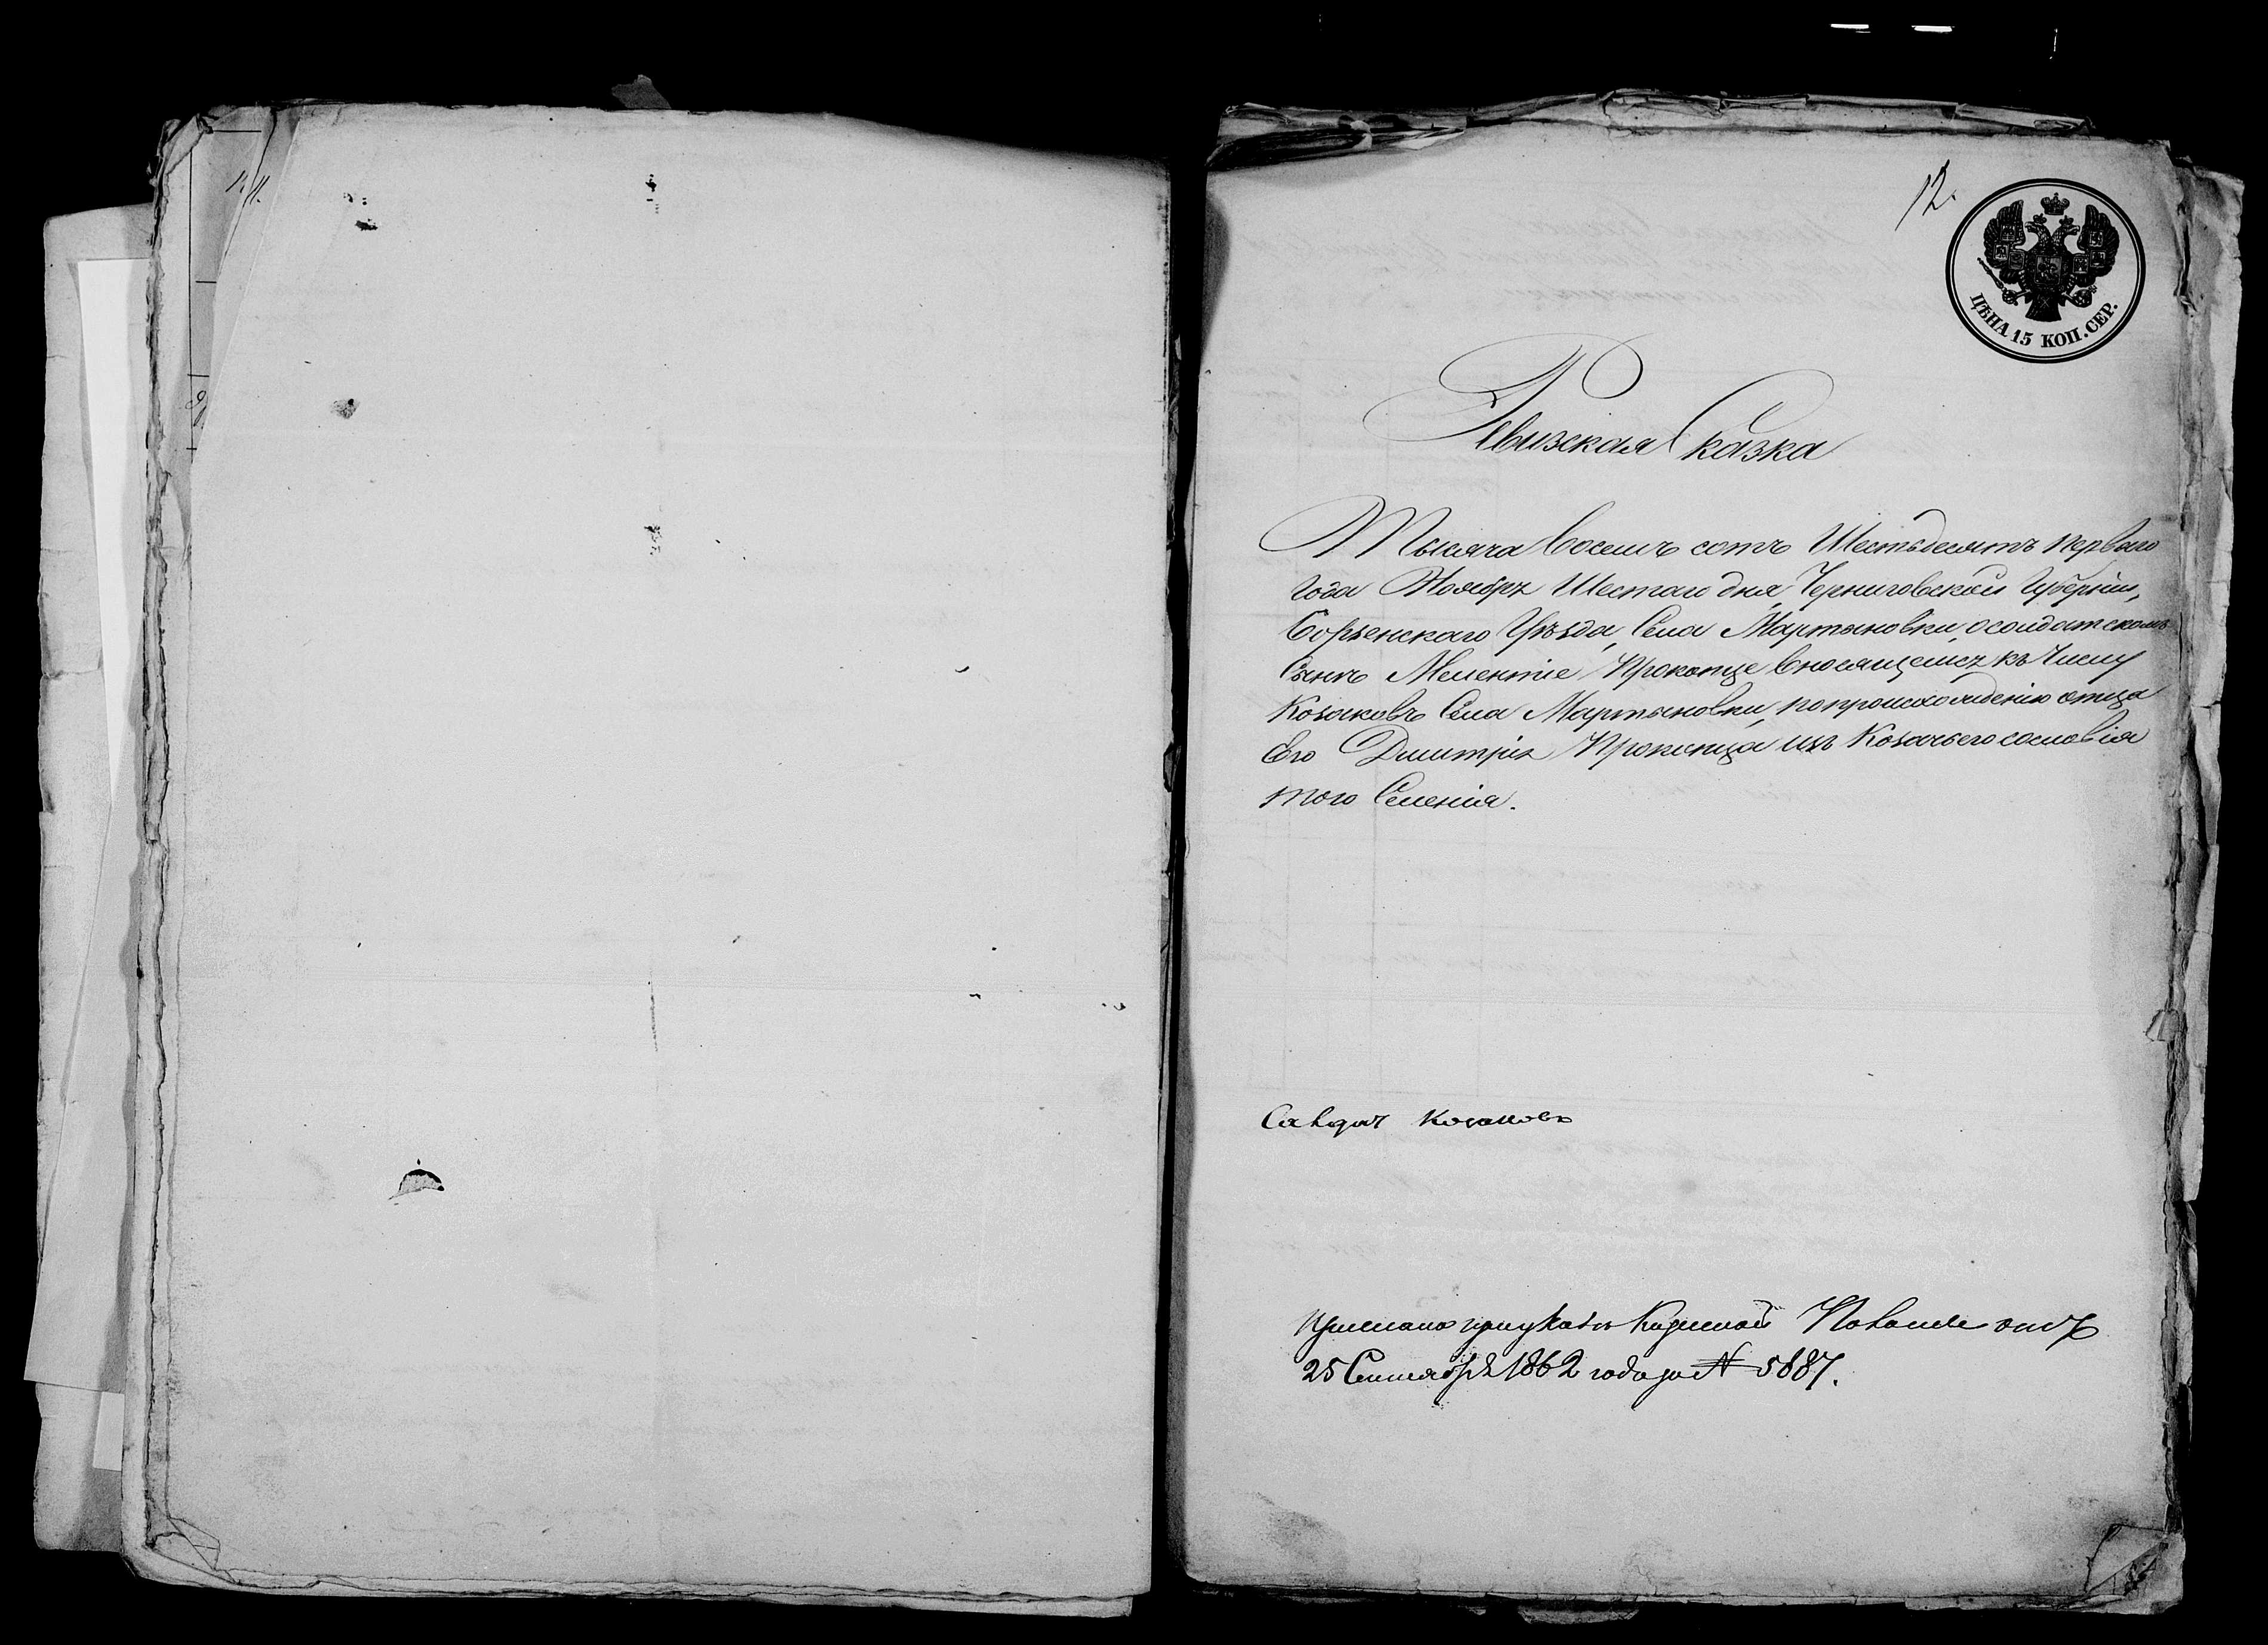 12.
ЦѢНА 15 КОП. СЕР.
Ревизская Сказка
Тысяча восемь сотъ Шестьдесятъ перваго
Года Ноября Шестаго дня, Черниговской Губерніи,
Борзенскаго Уѣзда, Села Мартыновки, о солдатскомъ
Сынѣ Мелентіе Прокопце вносящемся къ числу
Козаковъ Села Мартыновки, по происхожденію отца
Его Дмитрія Прокопца изъ Козачьего сословія
того Селенія.
Козаковъ
при указѣ Казенной Палаты отъ
25 Сентября 1862 года за № 5887.